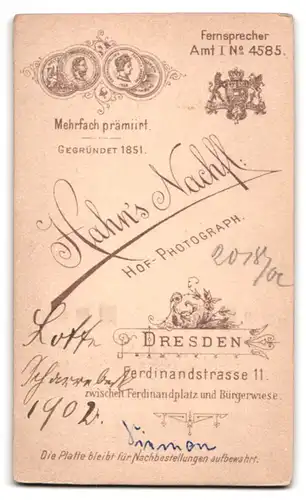 Fernsprecher
Amt I No 4585.
Mehrfach prämiirt.
GEGRÜNDET 1851.
Hahn's Nachfl.
HOF-PHOTOGRAPH.
Lotte
1902.
DRESDEN
Ferdinandstrasse 11.
zwischen Ferdinandplatz und Bürgerwiese.
Die Platte bleibt für Nachbestellungen aufbewahrt.